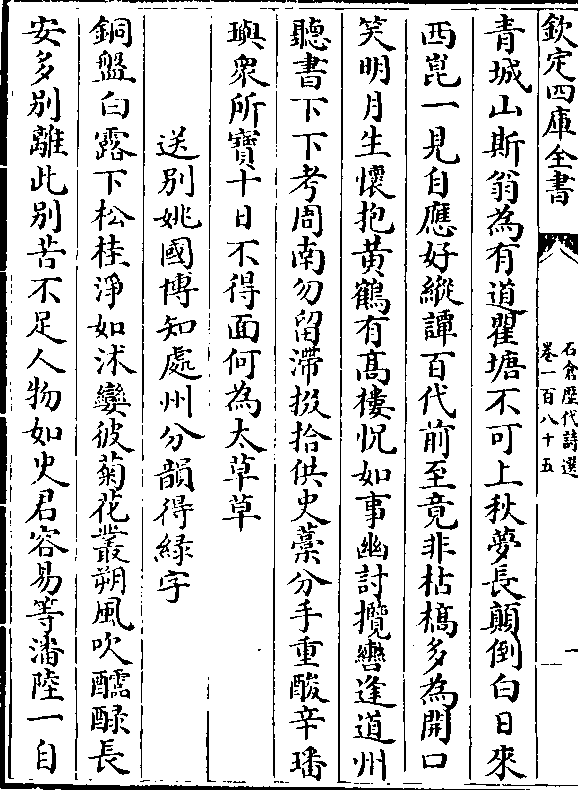 欽定四庫全書
石倉歷代詩選
卷一百八十五
一
青城山斯翁為有道瞿塘不可上秋夢長顛倒白日來
西崑一見自應好縱譚百代前至竟非枯槁多為開口
笑明月生懷抱黃鶴有高棲怳如事幽討攬轡逢道州
聽書下下考周南勿留滯掇拾供史藳分手重酸辛璠
璵眾所寶十日不得面何為太草草
送别姚國博知處州分韻得緑字
銅盤白露下松桂淨如沭孌彼菊花叢朔風吹醽醁長
安多别離此别苦不足人物如史君容易等潘陸一自